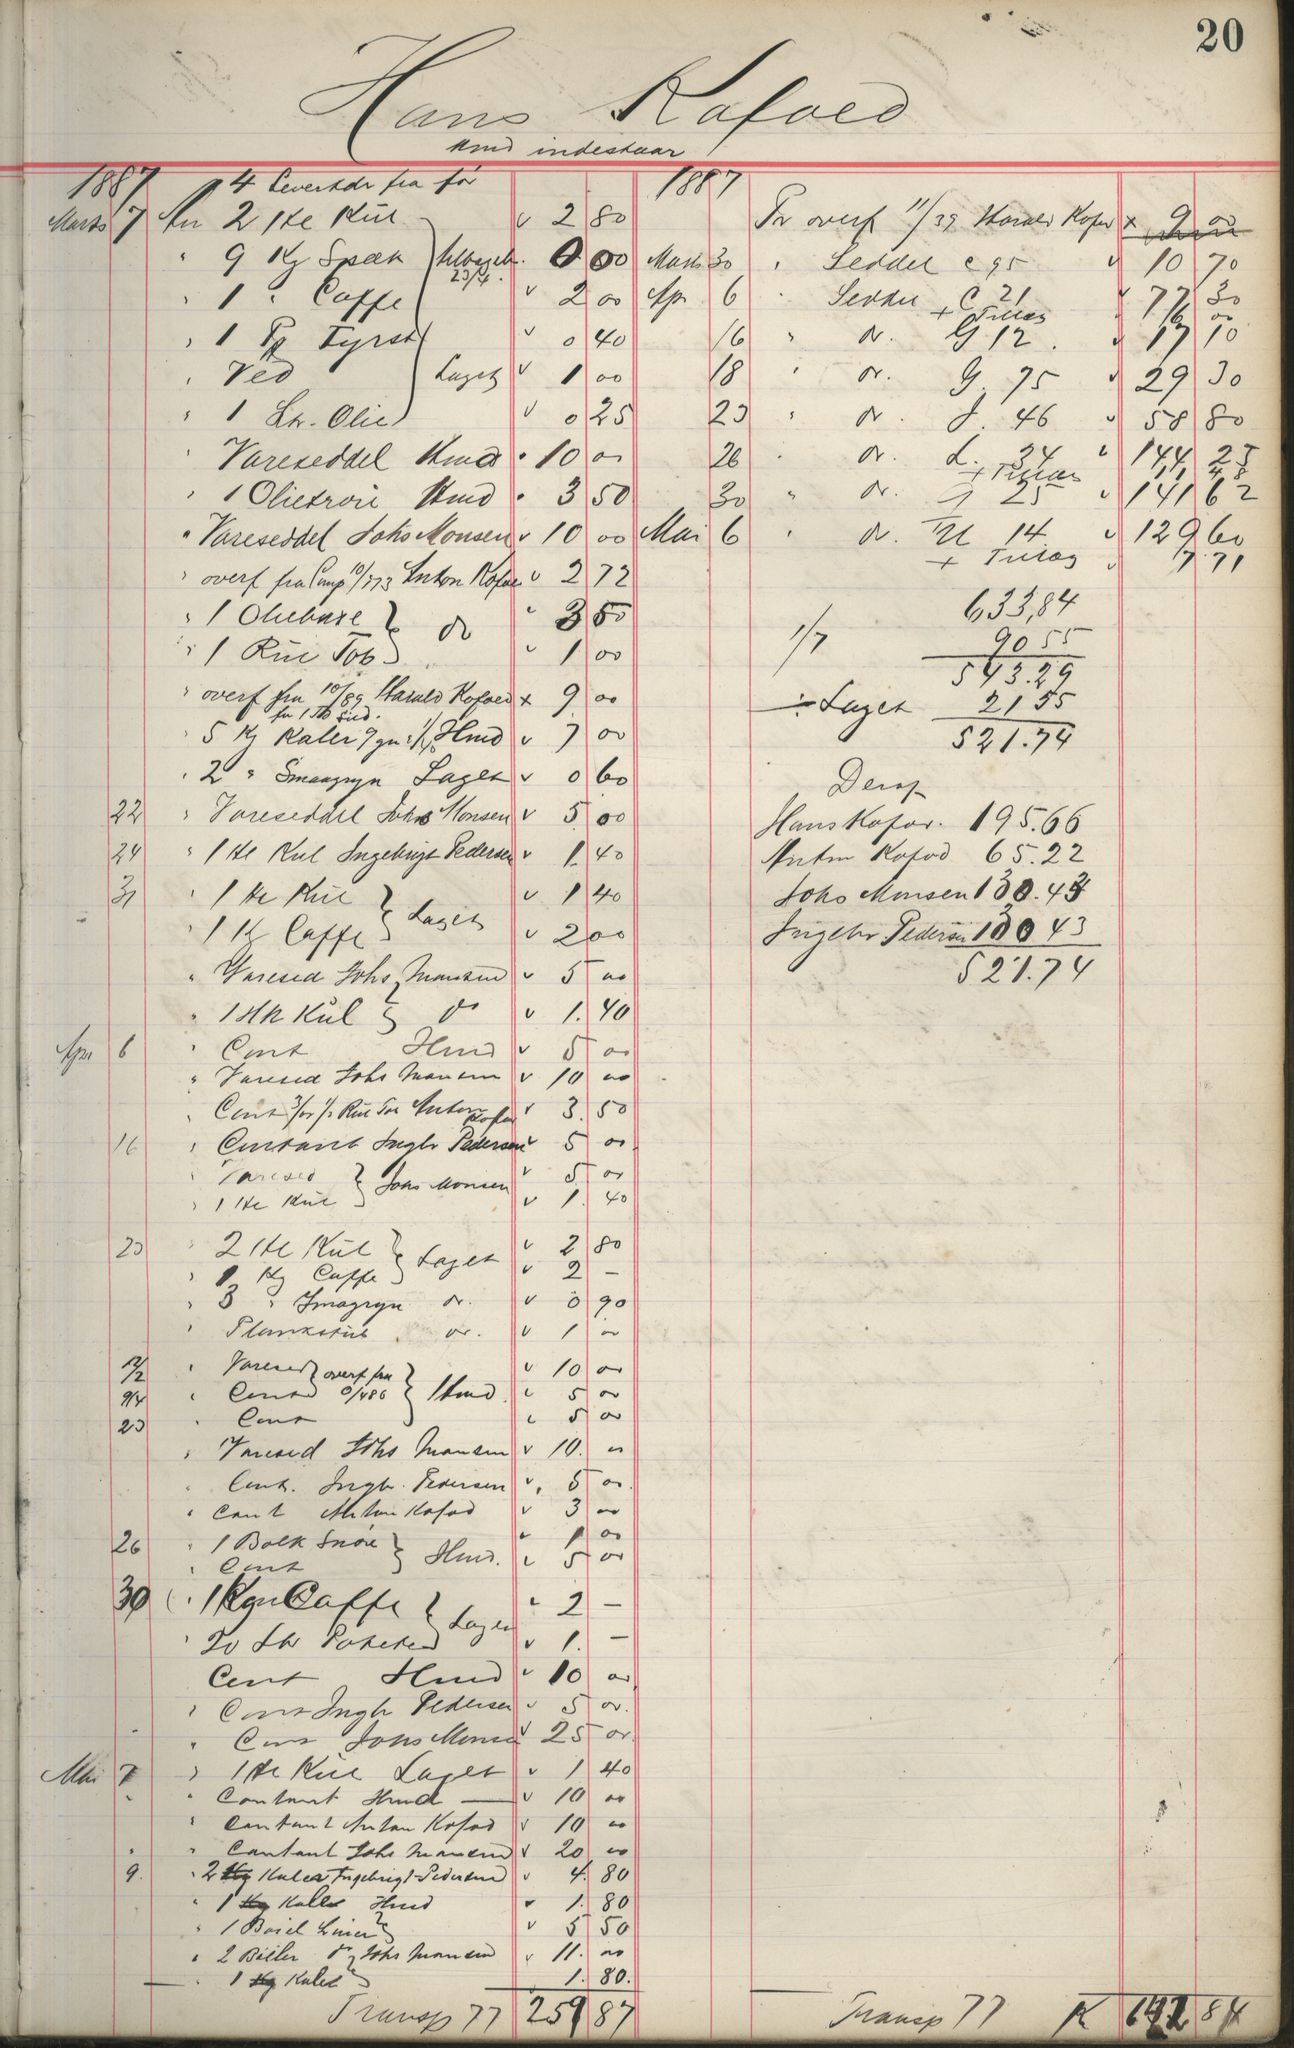 20
Hans Kofoed
Hmd indestaar
1887 4 fra før
Marts 7 An 2 Hl Kul v 2 80
" 9 Kg Spæk 0 00
23/4
" 1 " Caffe v 2 00
" 1 Pk Fyrst v 0 40
" Ved Laget v 1 00
" 1 Ltr. Olie v 0 25
" Vareseddel Hmd 10 00
" 1 Olietrøie Hmd 3 50
" Vareseddel Johs Monsen v 10 00
" overf fra 10/373 Anton Kofoe v 2 72
" 1 Oliebuxe 3 50
" 1 Rul Tob do v 1 00
" overf fra 10/89 Harald Kofoed x 9 00
" 5 Kg Kaler Hmd v 7 00
" 2 " Smaagryn Laget v 0 60
22 " Vareseddel Johs Monsen v 5 00
24 " 1 Hl Kul Ingebrigt Pedersen v 1 40
31 " 1 Hl Kul v 1 40
" 1 K Caffe Laget v 2 00
" Varesed Johs Monsen v 5 00
" 1 Hl Kul do v 1. 40
Apr 6 " Cont Hmd v 5 00
" Varesed Johs Monsen v 10 00
" Cont Anton Kofoe v 3. 50
16 " Contant Ingbr Pedersen v 5 00
" Varesed v 5 00
" 1 Hl Kul Johs Monsen v 1. 40
23 " 2 Hl Kul v 2 80
" 1 Kg Caffe Laget v 2 –
" 3 " Smagryn do. v 0 90
" Plankstub do. v 1 00
12/2 " Varesed overf fra v 10 00
9/4 " Cont 0/486 Hmd 5 00
23 " Cont 5 00
" Varesed Johs Monsen v 10. 00
" Cont. Ingbr. Pedersen v 5 00
" Cont Anton Kofod v 3 00
26 " 1 Bolk Snøre 1 00
" Cont Hmd. 5 00
30 " 1 Kgr Caffe 2 –
" 20 Ltr Poteter Laget v 1. –
Cont Hmd v 10 00
" Cont Ingbr Pedersen v 5 00
" Cont Johs Monsen v 25 00
Mai 7 " 1 Hl Kul Laget v 1 40
" " Contant Hmd — v 10 00
" Contant Anton Kofod v 10 00
" " Contant Johs Monsen v 20 00
9. " 2 Kg Kaler Ingebrigt Pedersen v 4. 80
" 1 Kg Kaler Hmd v 1. 80
" 1 Boiel Liner v 5 50
" 2 Biller do Johs Monsen v 11. 00
" 1 Kg Kaler 1. 80.
Transp 77 259 87
1887
Pr overf 11/39 Harald Kofoe x 9 00
Marts 30 " Seddel C 95 v 10 70
Apr 6 " Seddel C 21 v 77 30
+ Tillæg 6 00
16 " do. G 12. v 17 10
18 " do. G. 75 v 29 30
23 " do. J. 46 v 58 80
26 " do. L. 34 v 144 25
+ Tillæg 11 48
30 " do. 25 v 141 62
Mai 6 " do. U 14 v 129 60
+ Tillæg v 7.71
633,84
1/7 90 55
543.29
÷ Laget 21 55
521.74
Deraf
Hans Kofoe. 195.66
Anton Kofod 65.22
Johs Monsen 130.43
Ingebr Pedersen 130 43
521.74
Transp 77 K 642 84